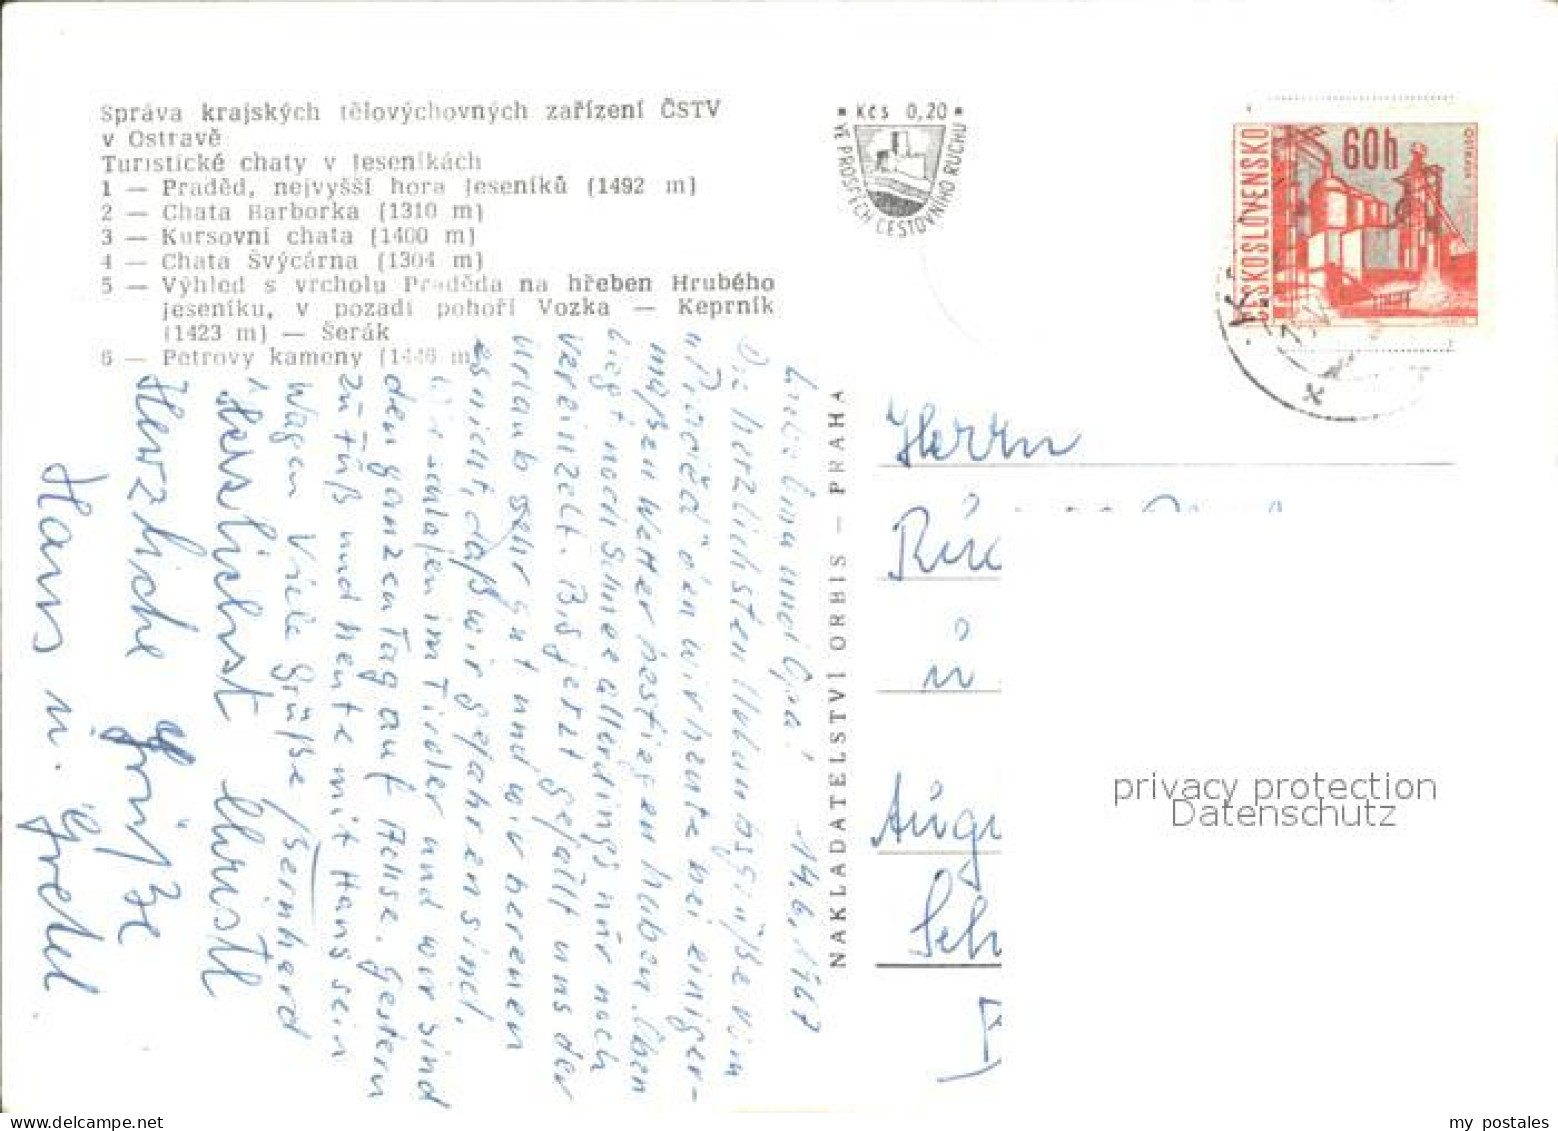 Správa krajských tělovýchovných zařízení ČSTV
v Ostravě
Turistické chaty v Jeseníkách
1 — Praděd, nejvyšší hora Jeseníků (1492 m)
2 — Chata Barborka (1310 m)
3 — Kursovní chata (1400 m)
4 — Chata Švýcárna (1304 m)
5 — Výhled s vrcholu Praděda na hřeben Hrubého
Jeseníku, v pozadí pohoří Vozka — Keprník
(1423 m) — Šerák
6 — Petrovy kameny (1446 m
* Kčs 0,20 *
VE PROSPĚCH CESTOVNÍHO RUCHU
ČESKOSLOVENSKO
60h
OSTRAVA
NAKLADATELSTVÍ ORBIS — PRAHA
Liebe Oma und Opa! 14.6.1967
Die herzlichsten Urlaubsgrüße vom
"Praděd" den wir heute bei einiger-
maßen Wetter bestiegen haben. Oben
liegt noch Schnee allerdings nur noch
vereinzelt. Bis jetzt gefällt uns der
Urlaub sehr gut und wir bereuen
es nicht, daß wir gefahren sind.
Wir schlafen im Tiroler und wir sind
den ganzen Tag auf Achse. Gestern
zu Fuß und heute mit Hans sein
Wagen Viele Grüße Bernhard
Herzlichst Christl
Herzliche Grüße
Hans u. Gretel
Herrn
in
privacy protection
Datenschutz
my postales